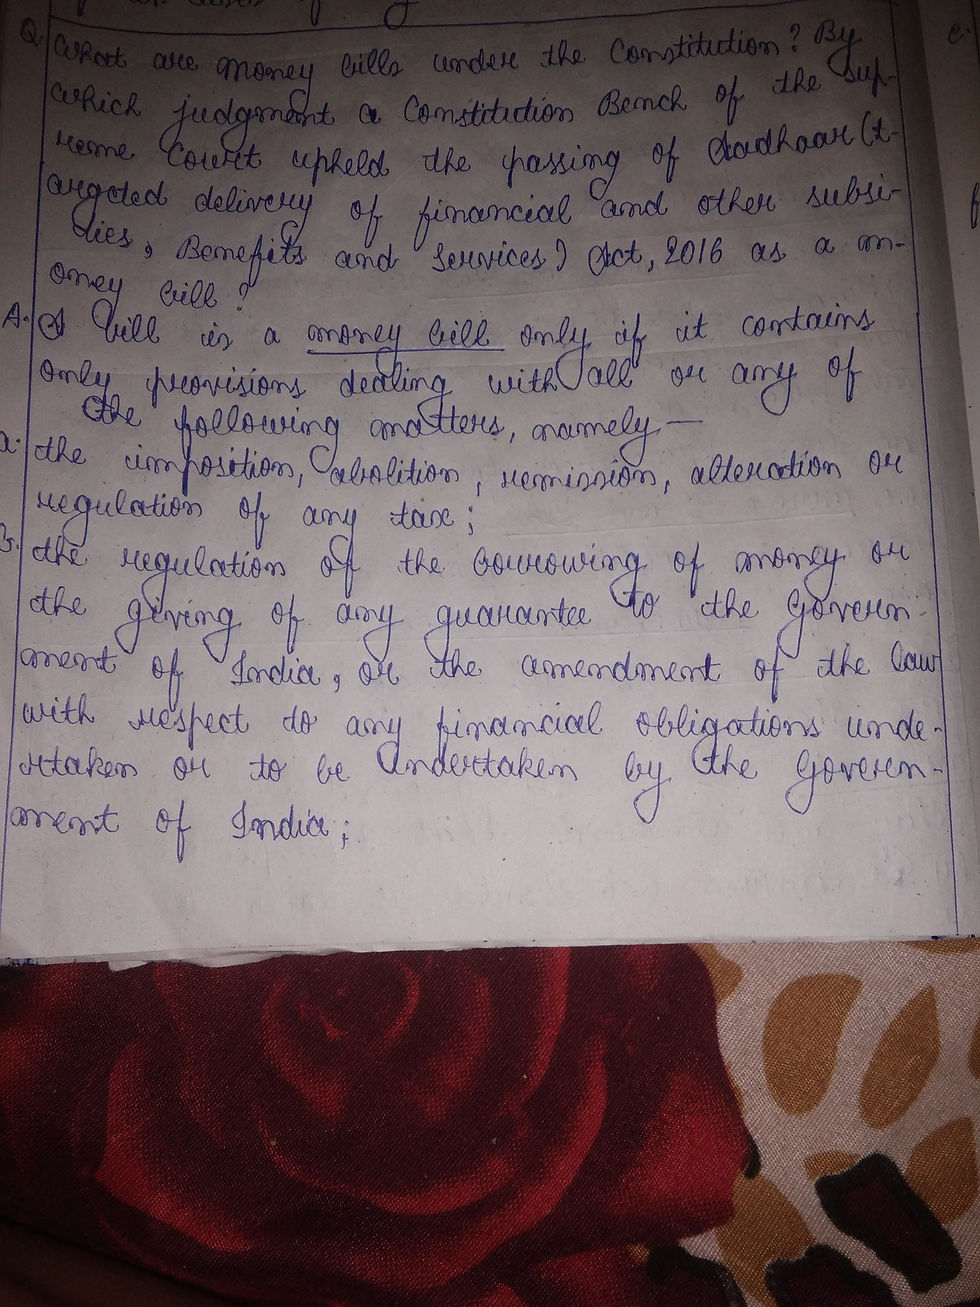 Q. What are money bills under the Constitution? By
which judgment a Constitution Bench of the Sup-
reme Court upheld the passing of Aadhaar (t-
argeted delivery of financial and other subsi-
dies, Benefits and Services) Act, 2016 as a m-
oney bill?
A. A bill is a money bill only if it contains
only provisions dealing with all or any of
the following matters, namely —
a. the imposition, abolition, remission, alteration or
regulation of any tax;
b. the regulation of the borrowing of money or
the giving of any guarantee to the Govern-
ment of India, or the amendment of the law
with respect to any financial obligations unde-
rtaken or to be undertaken by the Govern-
ment of India;